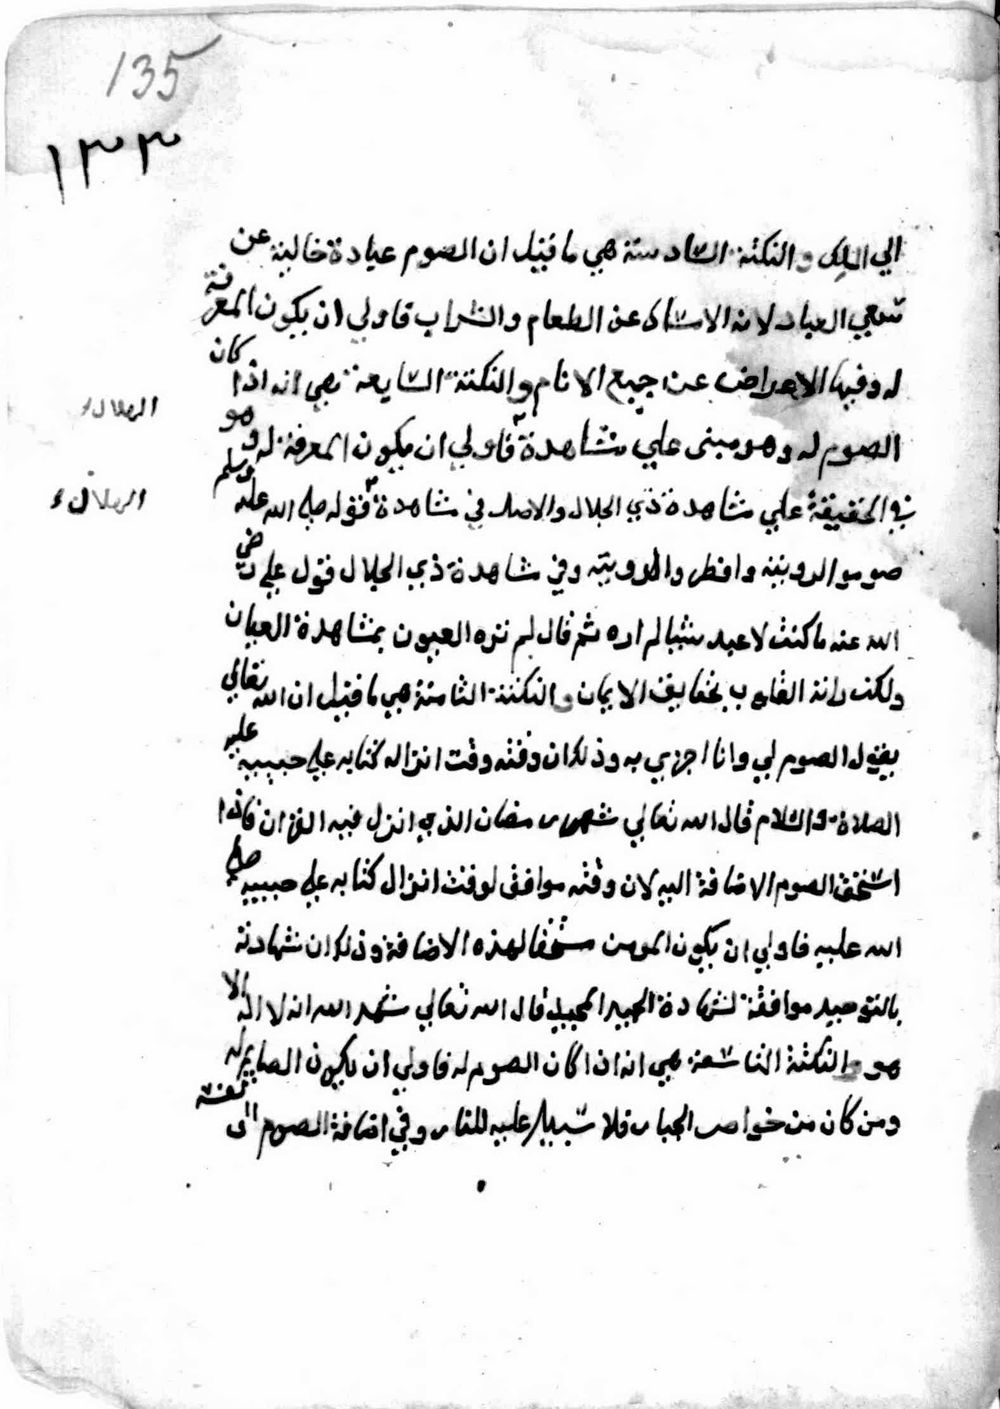 135
١٣٣
الي الملك والنكتة السادسة هي ما قيل ان الصوم عبادة خالية عن
سعي العباد لانه الامساك عن الطعام والشراب فاولي ان يكون المعرفة
له وفيها الاعراض عن جميع الانام والنكتة السابعة هي انه اذا كان
الصوم له وهو مبنى علي مشاهدة فاولي ان يكون المعرفة له وهو
الهلال
في الحقيقة علي مشاهدة ذي الجلال والاصل في مشاهدة قوله صلي الله عليه وسلم
الهلال
صوموا لرويته وافطروا لرويته وفي مشاهدة ذي الجلال قول علي رضي
الله عنه ما كنت لاعبد شيا لم اره ثم قال لم تره العيون بمشاهدة العيان
ولكن راته القلوب بحقايق الايمان والنكتة الثامنة هي ما قيل ان الله تعالي
يقول الصوم لي وانا اجزي به وذلك ان وقته وقت انزاله كتابه علي حبيبه عليه
الصلاة والسلام قال الله تعالي شهر رمضان الذي انزل فيه القران فاذا
استحق الصوم الاضافة اليه لان وقته موافق لوقت انزال كتابه علي حبيبه صلي
الله عليه فاولي ان يكون المومن مستحقا لهذه الاضافة وذلك ان شهادته
بالتوحيد موافقة لشهادة الحميد المجيد قال الله تعالي شهد الله انه لا اله الا
هو والنكتة التاسعة هي انه اذا كان الصوم له فاولي ان يكون الصايم له
ومن كان من خواص الجبار فلا سبيل عليه للنار وفي اضافة الصوم الى نفسه